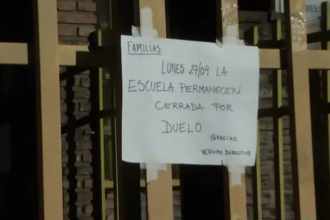 FAMILIAS:
LUNES 27/04 LA
ESCUELA PERMANECERÁ
CERRADA POR
DUELO.
GRACIAS
EQUIPO DIRECTIVO